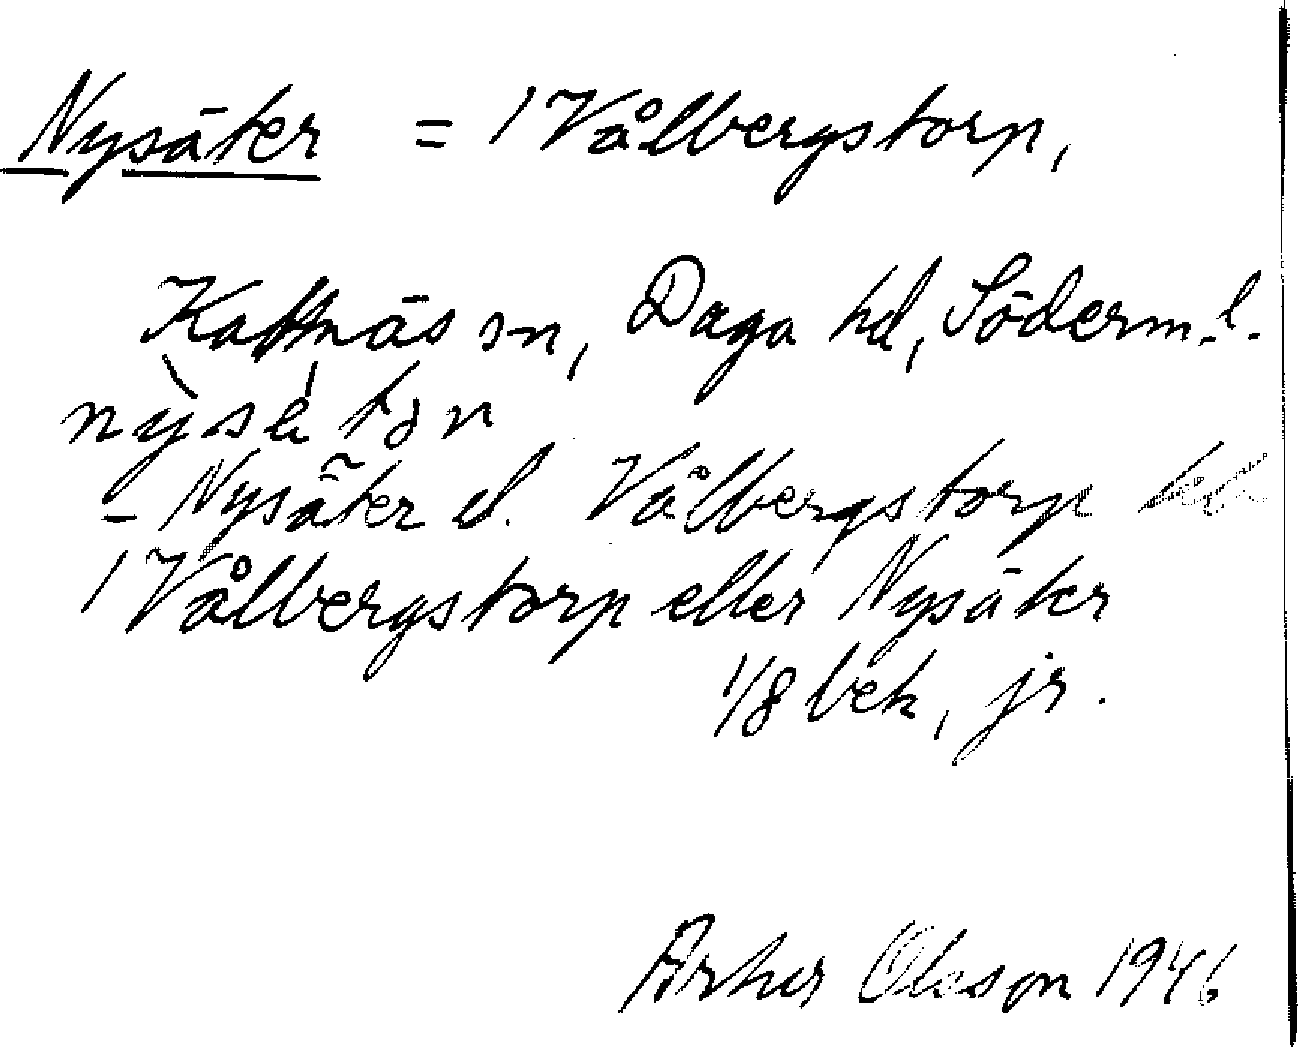 Nysäter = 1 Vålbergstorp,
Kattnäs sn, Daga hd, Söderm. l.
nỳsétər
- Nysäter el. Vålbergstorp
1 Vålbergstorp eller Nysäter
1/8 bek, jr.
Arthur Olsson 1946